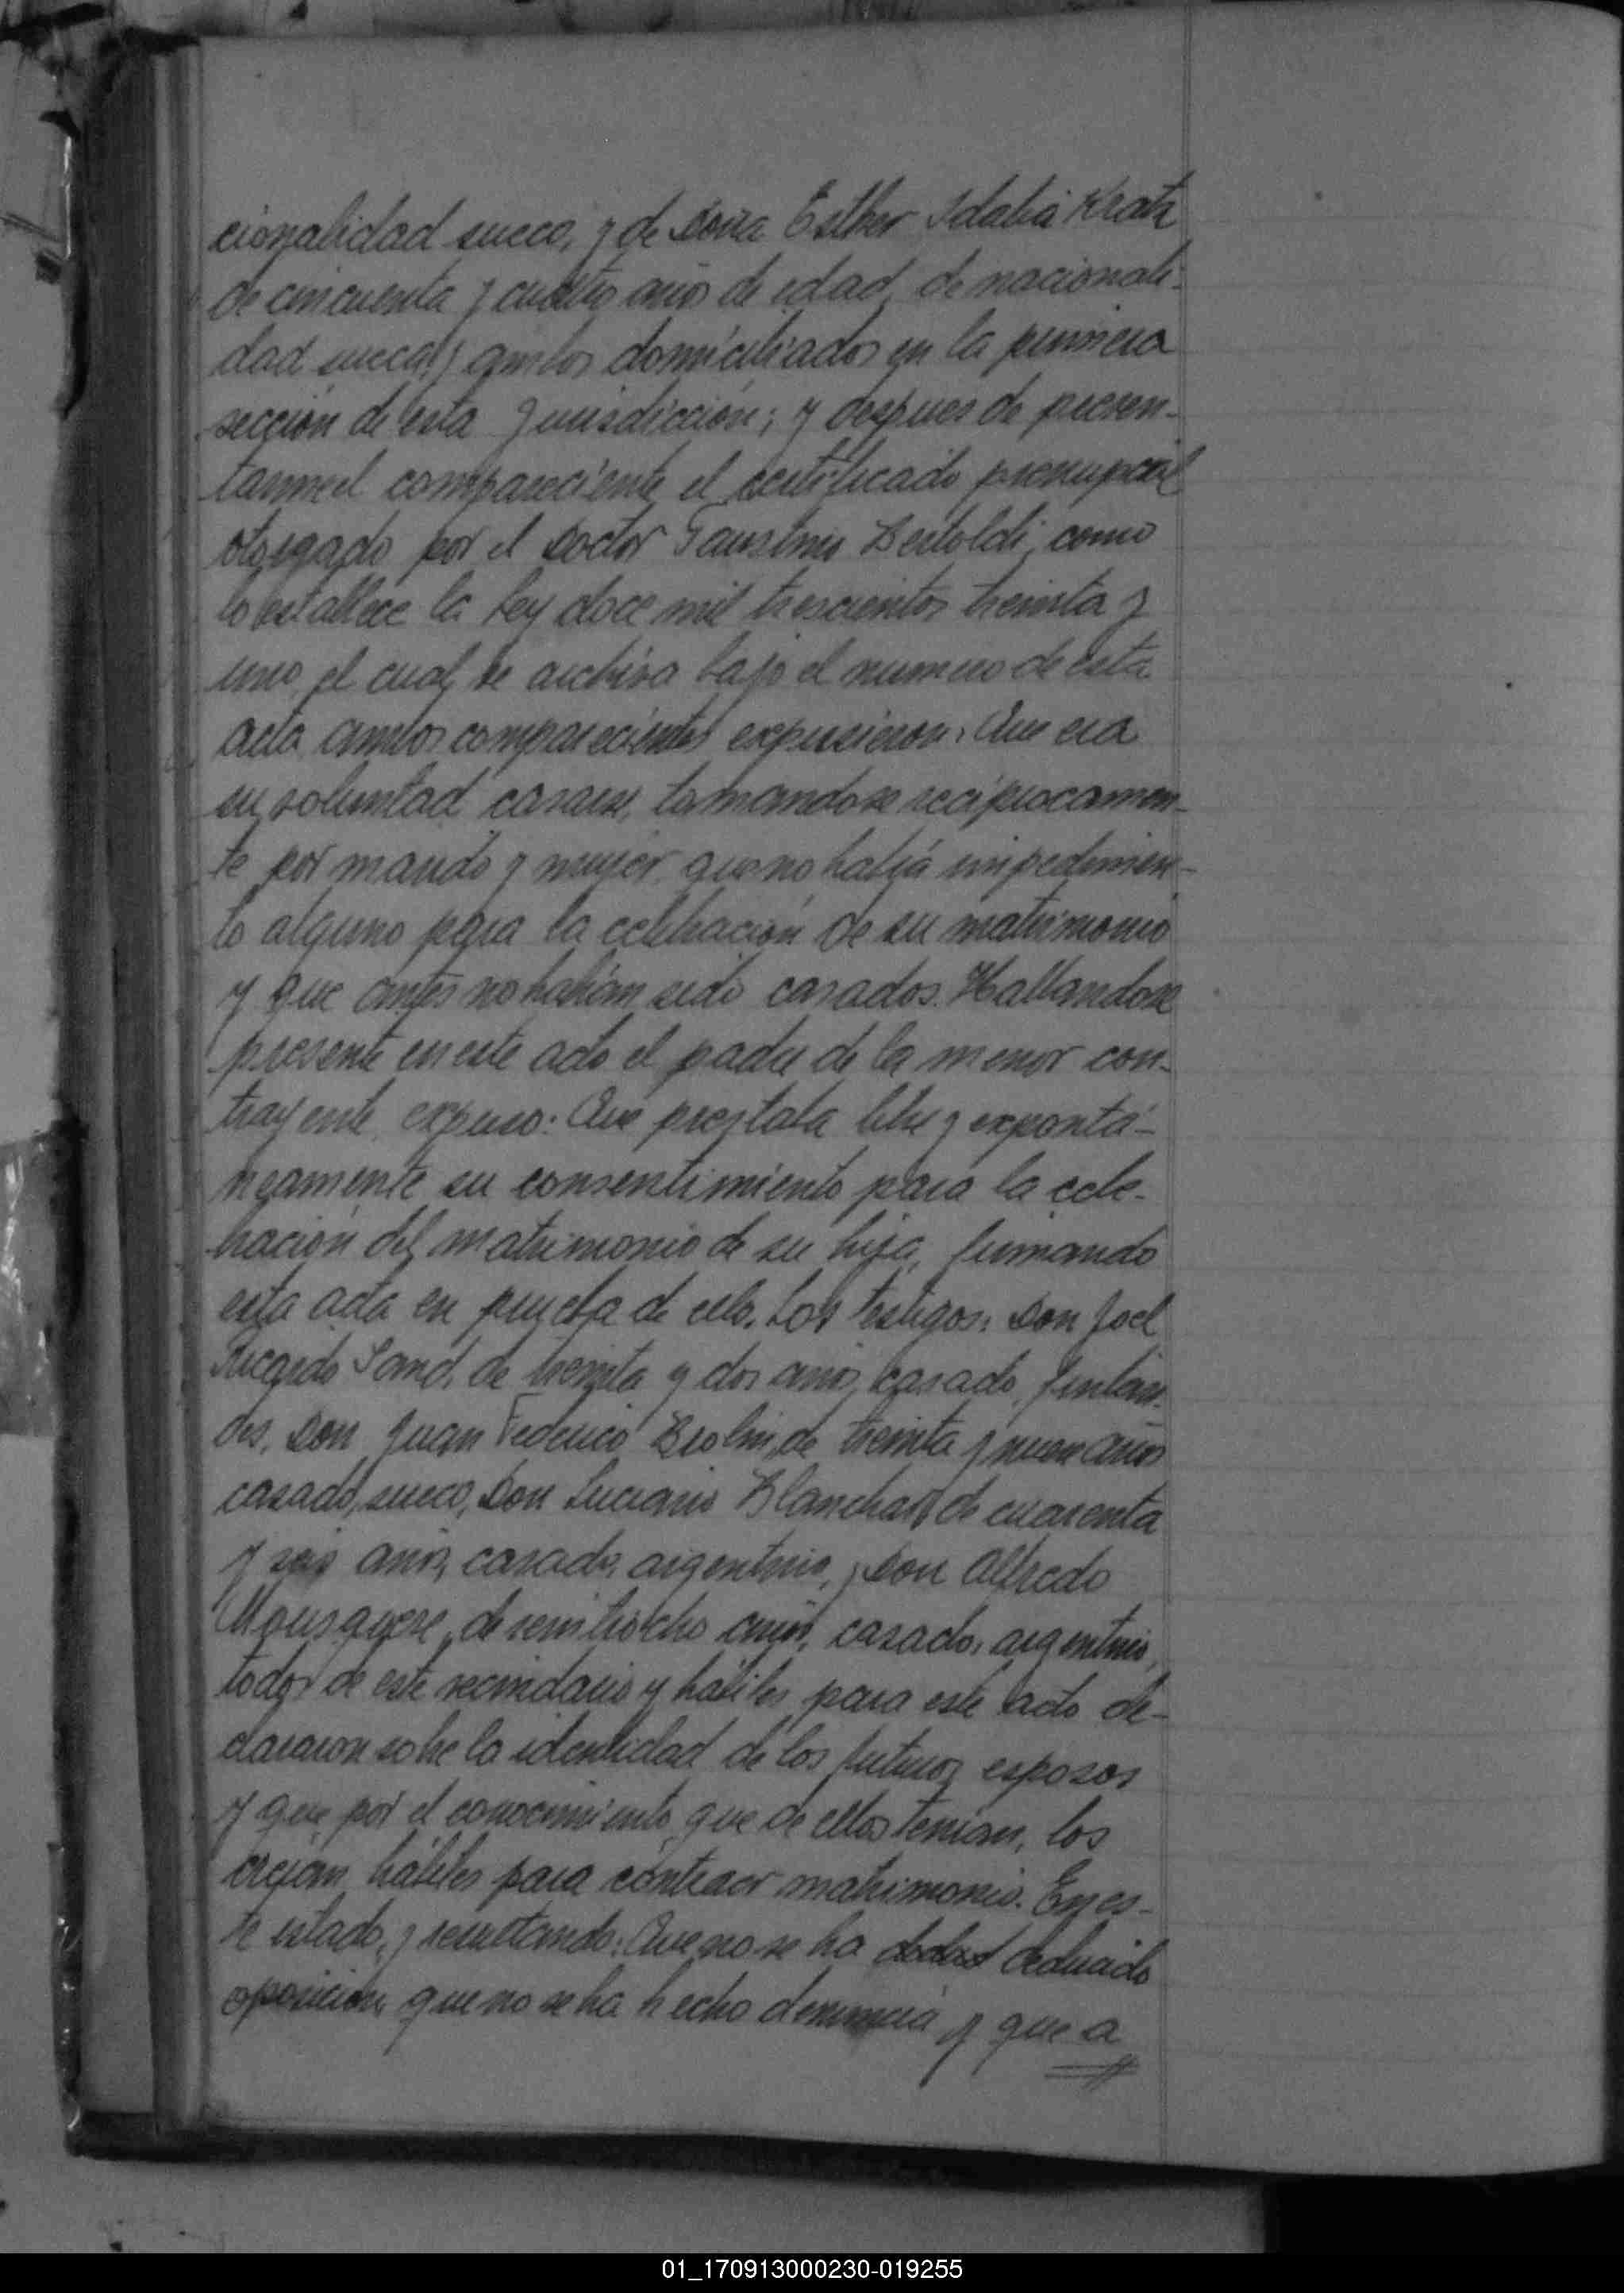 cionalidad sueco, y de Doña Esther Idalia Kratz
de cincuenta y cuatro años de edad, de nacionali-
dad sueca, y ambos domiciliados en la primera
sección de esta Jurisdicción; y despues de presen-
tarme el compareciente el certificado prenupcial
otorgado por el Doctor Faustino Bertoldi, como
lo establece la Ley doce mil trescientos treinta y
uno, el cual se archiva bajo el numero de esta
acta, ambos comparecientes expusieron: Que era
su voluntad casarse, tomandose reciprocamen-
te por marido y mujer, que no había impedimen-
to alguno para la celebración de su matrimonio
y que antes no habían sido casados. Hallandose
presente en este acto el padre de la menor con-
trayente, expuso: Que prestaba libre y expontá-
neamente su consentimiento para la cele-
bración del matrimonio de su hija, firmando
esta acta en prueba de ello. Los testigos: Don Joel
Ricardo Sand, de treinta y dos años, casado, finlan-
dés, Don Juan Federico Brolin, de treinta y nueve años
casado, sueco, Don Luciano Blanchar, de cuarenta
y seis años, casado, argentino, y Don Alfredo
de veintiocho años, casado, argentino,
todos de este vecindario y hábiles para este acto de-
clararon sobre la identidad de los futuros esposos
y que por el conocimiento que de ellos tenían, los
creían hábiles para contraer matrimonio. En es-
te estado, y resultando: Que no se ha deducido
oposición, que no se ha hecho denuncia y que a
01_170913000230-019255